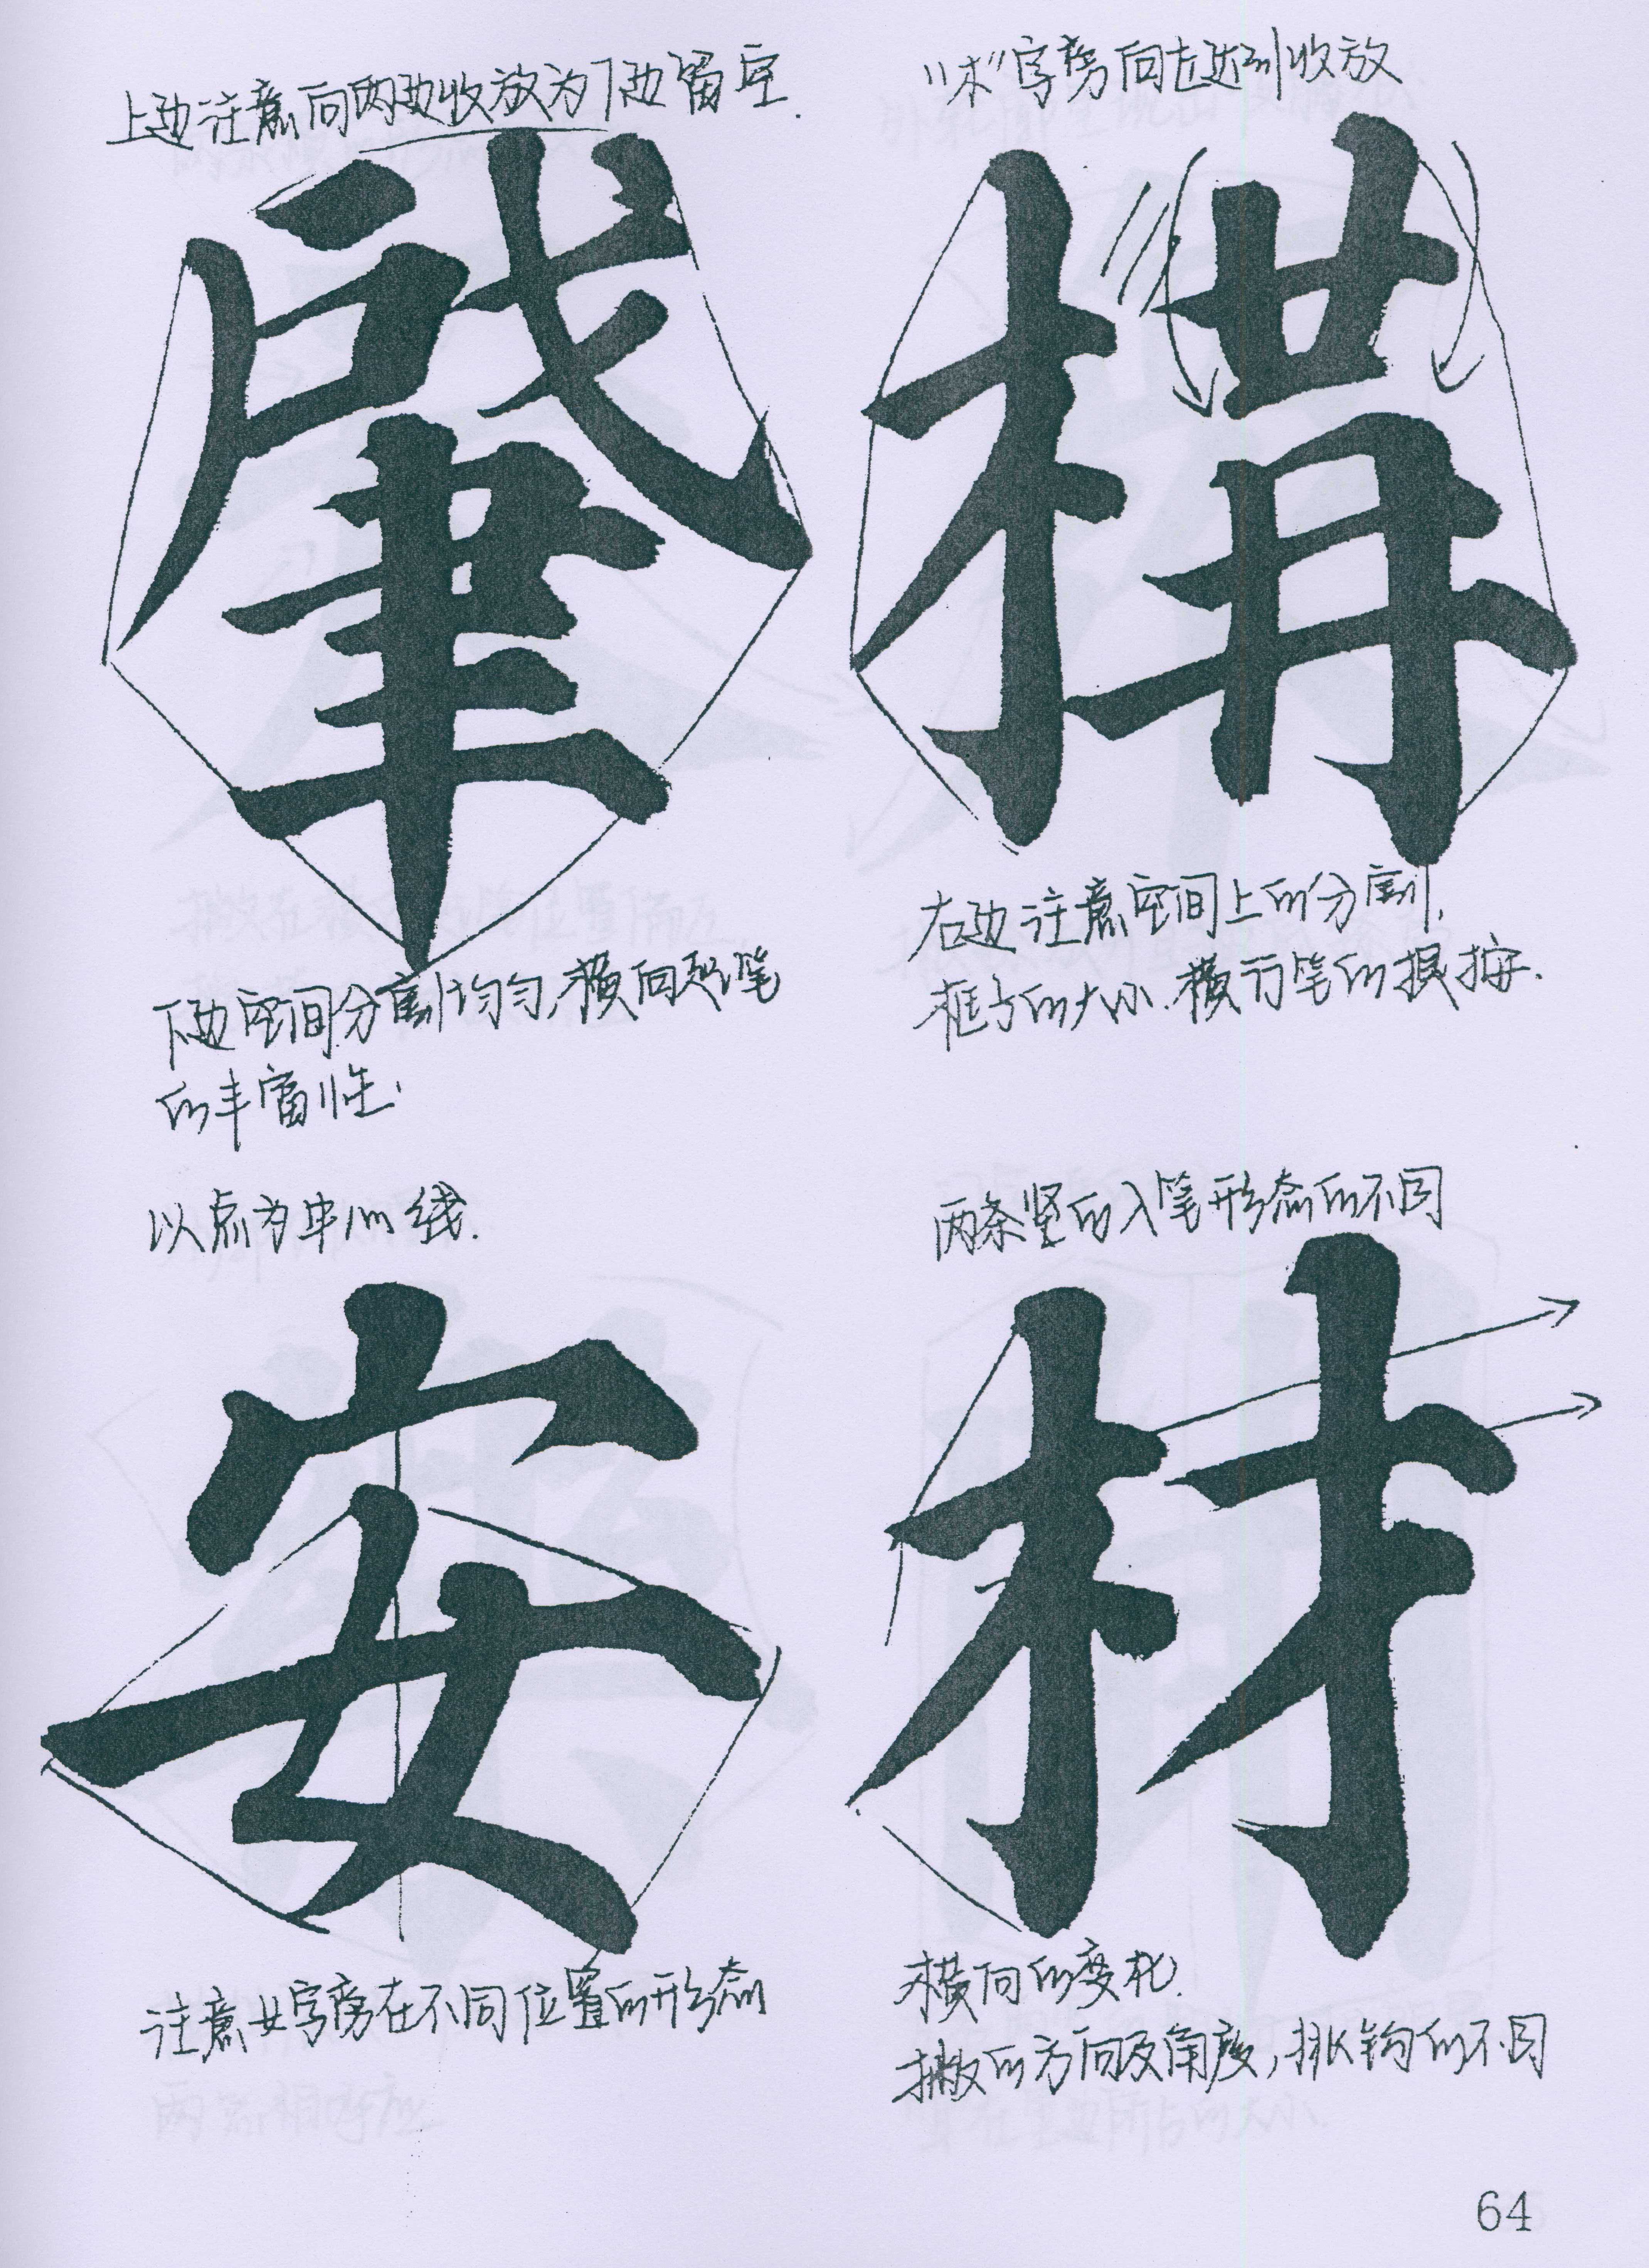 上边注意向两边收放为下边留空.
肇
下边空间分割均匀,横向起笔
的丰富性.
"木"字旁向左达到收放
構
右边注意空间上的分割.
框子的大小.横行笔的提按.
以点为中心线.
安
注意女字旁在不同位置的形态
两条竖的入笔形态的不同
材
横向的变化.
撇的方向及角度,挑钩的不同
64